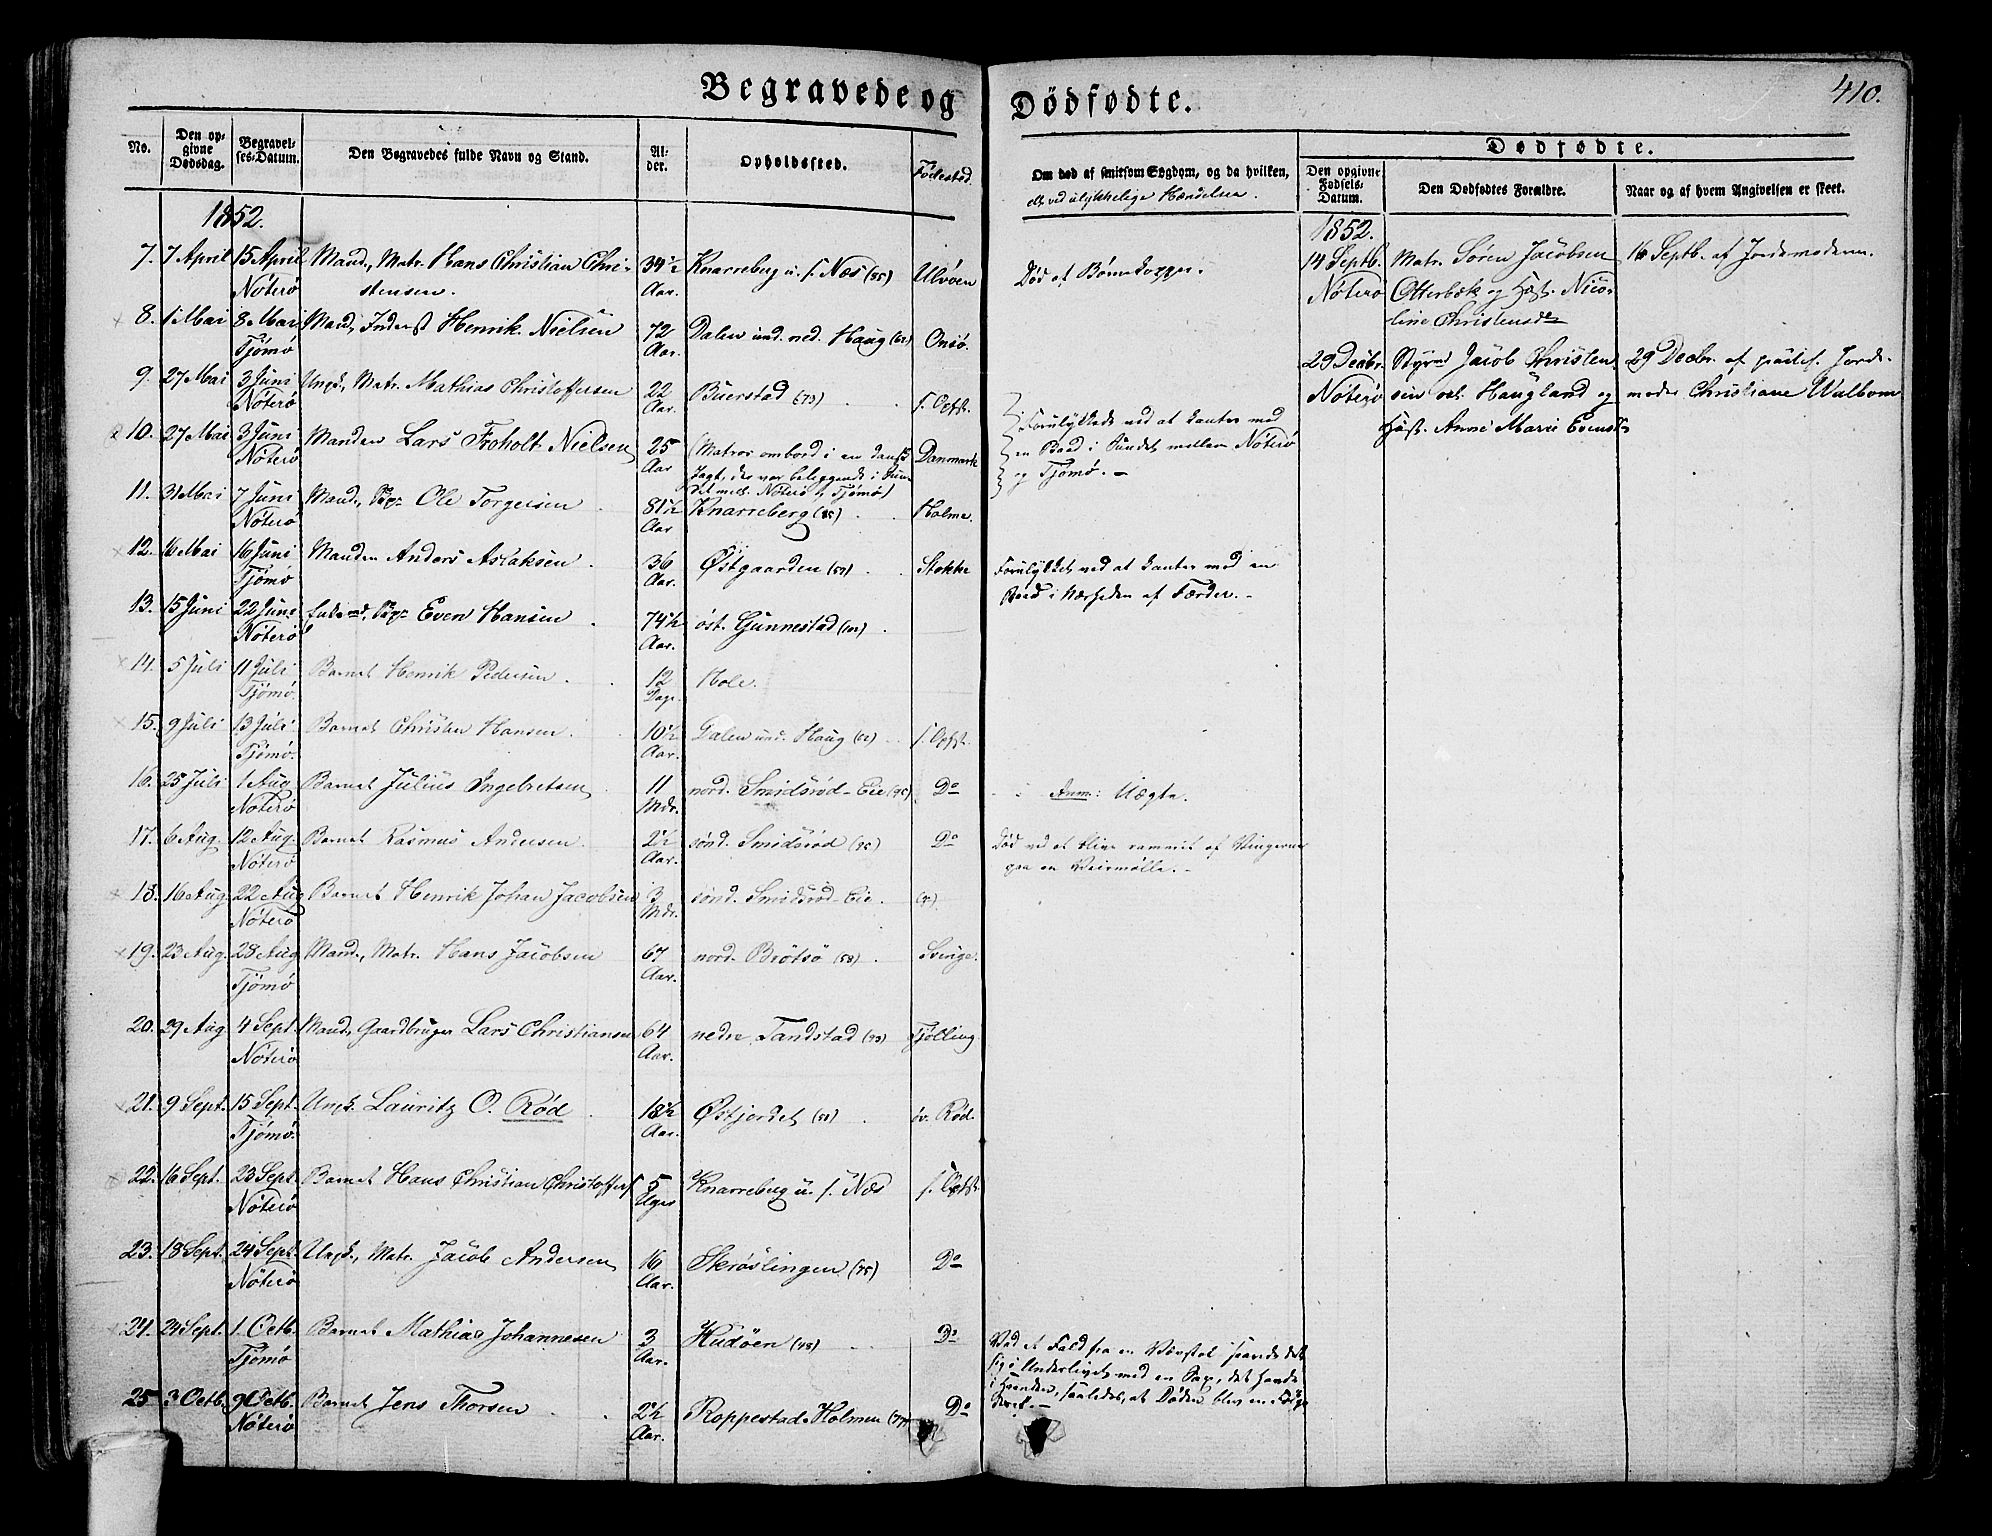 410.
Begravede og Dødfødte.
No.
Den opgivne Dødsdag.
Begravelses-Datum.
Den Begravedes fulde Navn og Stand.
Alder.
Opholdssted.
Fødested.
Om død af smitsom Sygdom, og da hvilken,
elr ved ulykkelige Hændelser.
Dødfødte.
Den opgivne Fødsels-Datum.
Den Dødfødtes Forældre.
Naar og af hvem Angivelsen er skeet.
1852.
7. 7 April 15 April Mand, Matr. Hans Christian Chri- 34 1/2 Knarreberg u. s. Næs (85) Ulvøen Død af Børnekopper.
Nøterø stensen. Aar.
8. 1 Mai 8 Mai Mand, Inderst Henrik Nielsen 72 Dalen und. ned. Haug (62) Onsø.
Tjømø Aar.
9. 27 Mai 3 Juni Ungk. Matr. Mathias Christoffersen 22 Buerstad (73) s. Opst.
Nøterø Aar.
10. 27 Mai 3 Juni Manden Lars Froholt Nielsen 25 (Matros ombord i en dansk Danmark
Nøterø Aar Jagt, der var beliggende i Sun-
det mell. Nøterø & Tjømø)
Forulykkede ved at kantre med
en Baad i Sundet mellem Nøterø
og Tjømø. -
11. 31 Mai 7 Juni Mand, Ole Torgersen 81 1/2 Knarreberg (85) Holme.
Nøterø Aar
12. 16 Mai 16 Juni Manden Anders Aslaksen 36 Østgaarden (59) Stokke Forulykket ved at kantre med en
Tjømø Aar. Baad i Nærheden af Færder. -
13. 15 Juni 22 Juni Even Hansen 74 1/2 øst. Gunnestad (102)
Nøterø Aar.
14. 5 Juli 11 Juli Barnet Henrik Pedersen 12 Hole.
Tjømø Dage
15. 9 Juli 13 Juli Barnet Christen Hansen 10 1/2 Dalen und. Haug (62) s. Opst.
Tjømø. Aar.
16. 25 Juli 1 Aug Barnet Julius Ingebretsen 11 nord. Smidsrød-Eie Do Anm: Uægte.
Nøterø Mdr.
17. 6 Aug. 12 Aug. Barnet Rasmus Andersen 2 1/2 sønd. Smidsrød Do Død ved at blive rammet af Vingerne
Nøterø Aar. paa en Veirmølle. -
18. 16 Aug. 22 Aug Barnet Henrik Johan Jacobsen 3 sønd. Smidsrød-Eie.
Nøterø Mdr.
19. 23 Aug. 28 Aug Mand, Matr. Hans Jacobsen 67 nord. Brøtsø (58) Svinge.
Tjømø Aar.
20. 29 Aug 4 Sept. Mand, Gaardbruger Lars Christiansen 64 nedre Tandstad (93) Tjølling.
Nøterø Aar.
21. 9 Sept. 15 Sept. Ungk. Lauritz O. Rød 18 1/2 Østjordet (58) øv. Rød.
Tjømø. Aar.
22. 16 Sept. 23 Sept. Barnet Hans Christian Christoffers 5 Knarreberg u. s. Næs s. Opst.
Nøterø Uger
23. 18 Sept. 24 Sept. Ungk., Matr. Jacob Andersen 16 Skrøslingen (75) Do
Nøterø Aar.
24. 24 Sept. 1 Octb. Barnet Mathias Johannesen 3 Hudøen (48) Do Ved et Fald fra en
Tjømø Aar. sig i Underlivet med en det havde
i Haanden, saaledes, at Døden blev en Følge
deraf. -
25 3 Octb. 9 Octb. Barnet Jens Thorsen 2 1/2 Roppestad-Holmen (77) Do
Nøterø Aar.
1852.
14 Septb. Matr. Søren Jacobsen 16 Septb. af Jordemoderen.
Nøterø Otterbæk og Høst. Nico-
line Christensdr
29 Decbr. Styrmd Jacob Christen- 29 Decbr. af Jorde-
Nøterø sen øst. Haugland og moder Christiane Walbom
Høst. Anne Marie Evensdr